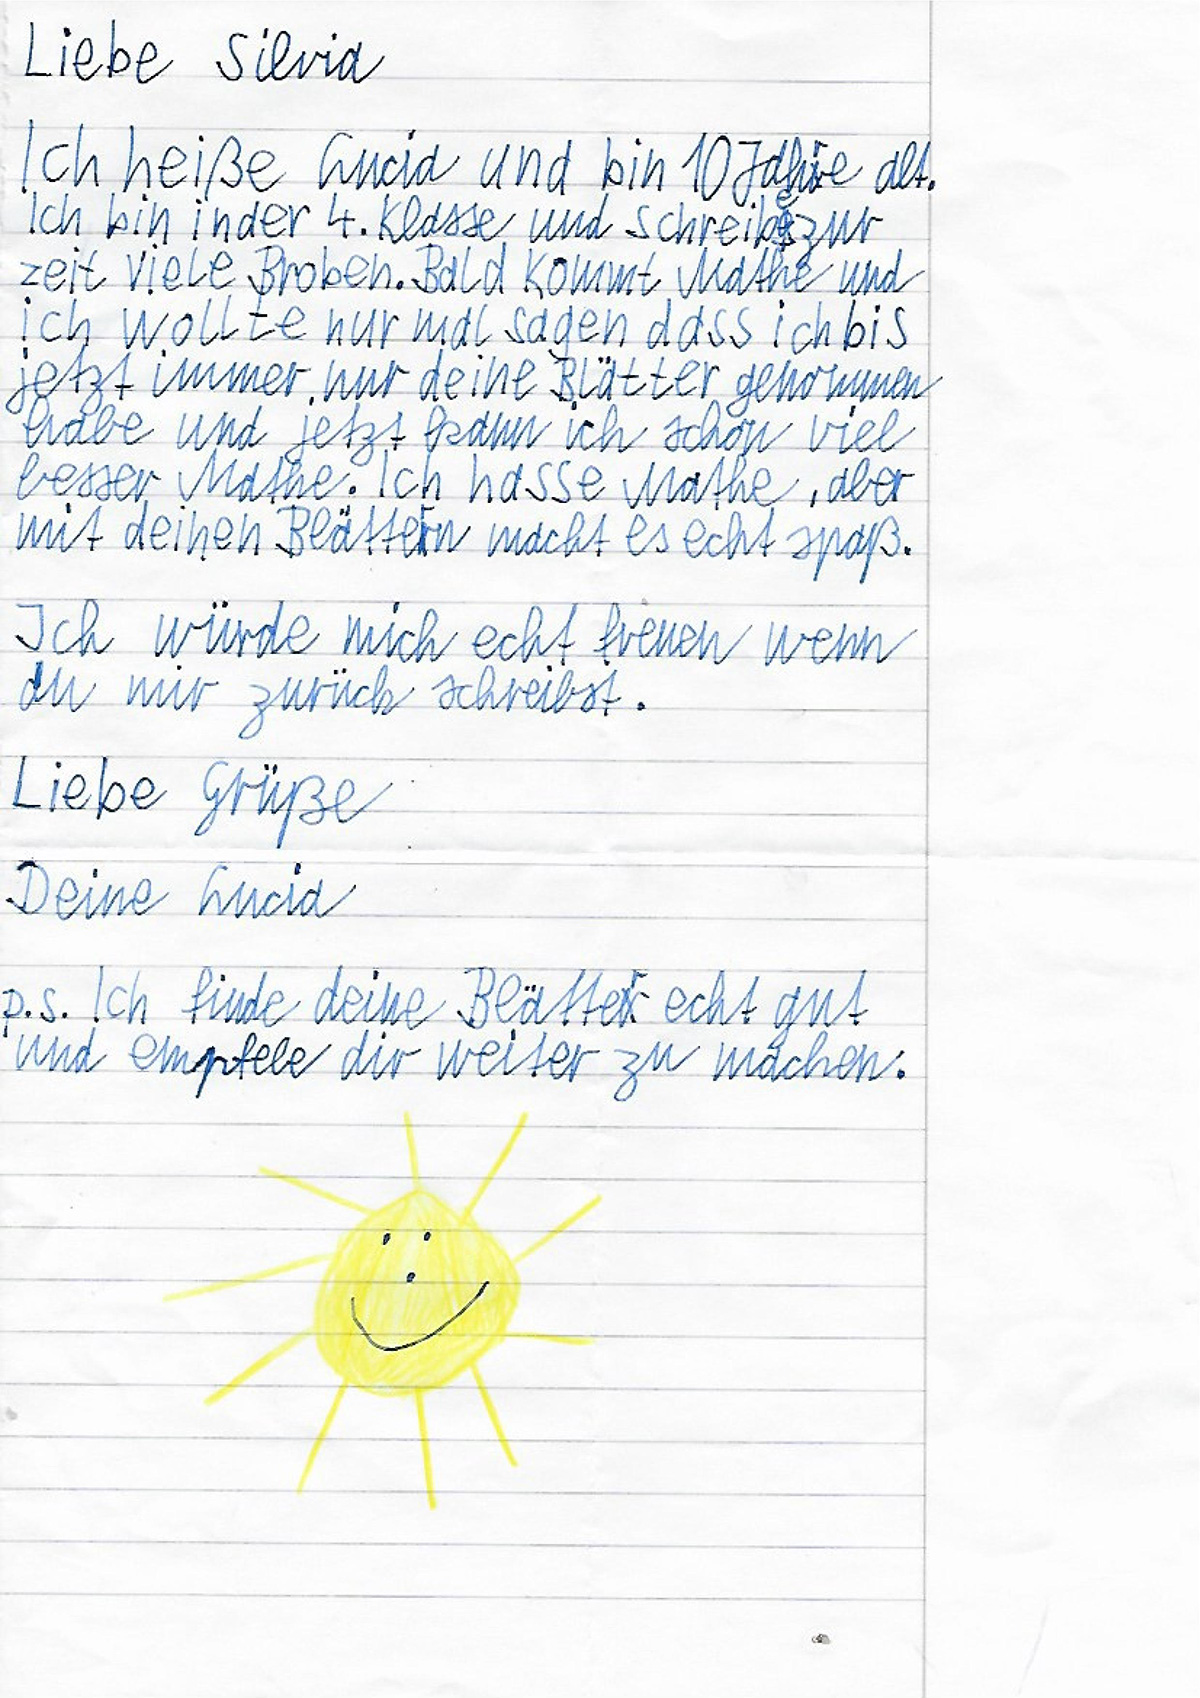 Liebe Silvia
Ich heiße Lucia und bin 10 Jahre alt.
Ich bin in der 4. Klasse und schreibe zur
zeit viele Broben. Bald kommt Mathe und
ich wollte nur mal sagen dass ich bis
jetzt immer nur deine Blätter genommen
habe und jetzt kann ich schon viel
besser Mathe. Ich hasse Mathe, aber
mit deinen Blättern macht es echt spaß.
Ich würde mich echt freuen wenn
du mir zurück schreibst.
Liebe Grüße
Deine Lucia
p.s. Ich finde deine Blätter echt gut
und empfele dir weiter zu machen.